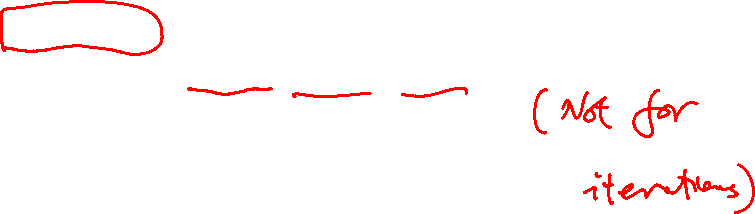 (Not for
iterations)